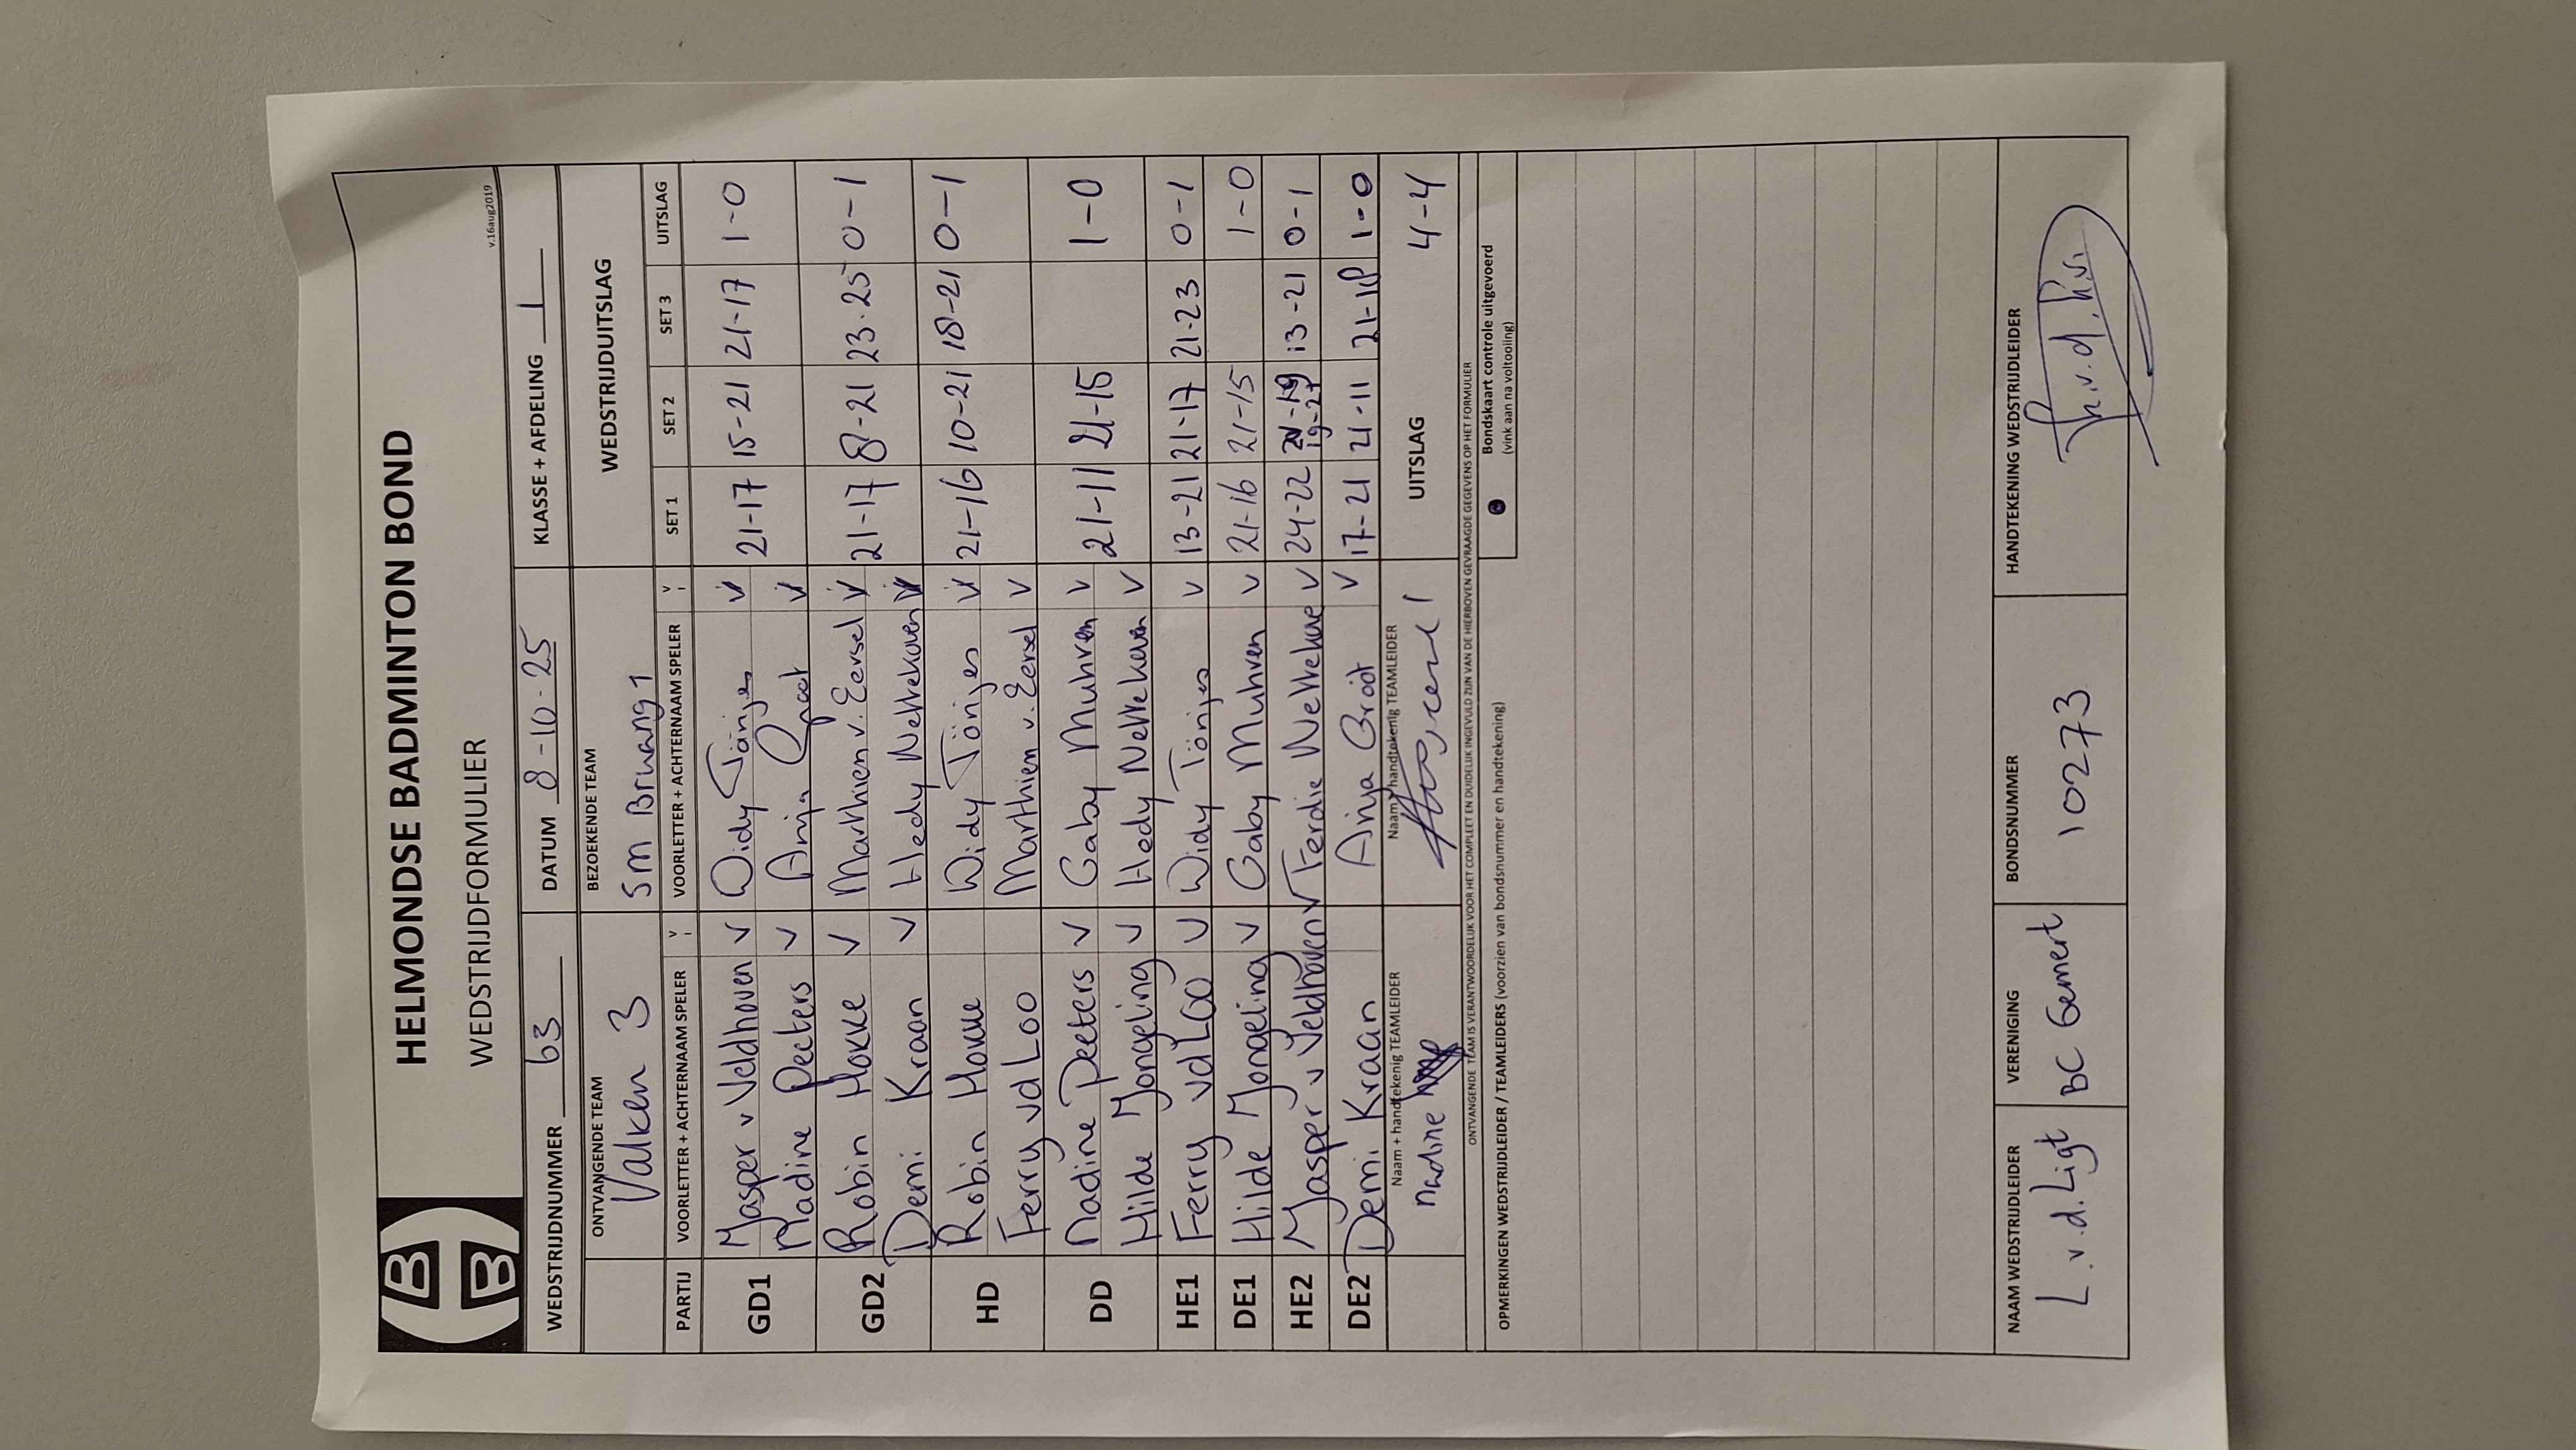 HELMONDSE BADMINTON BOND
WEDSTRIJDFORMULIER
v.16aug2019
WEDSTRIJDNUMMER 63 DATUM 8-10-25 KLASSE + AFDELING 1
ONTVANGENDE TEAM BEZOEKENDE TEAM WEDSTRIJDUITSLAG
Valken 3 SM Bruang 1
PARTIJ VOORLETTER + ACHTERNAAM SPELER V VOORLETTER + ACHTERNAAM SPELER V SET 1 SET 2 SET 3 UITSLAG
GD1 Jasper v Veldhoven V Widy Tönjes V 21-17 15-21 21-17 1-0
Nadine Peeters V Anja Groot V
GD2 Robin Hokke V Marthien v. Eersel V 21-17 8-21 23-25 0-1
Demi Kraan V Hedy Nettekoven V
HD Robin Hokke Widy Tönjes V 21-16 10-21 18-21 0-1
Ferry vd Loo Marthien v. Eersel V
DD Nadine Peeters V Gaby Muhren V 21-11 21-15 1-0
Hilde Jongeling V Hedy Nettekoven V
HE1 Ferry vd Loo V Widy Tönjes V 13-21 21-17 21-23 0-1
DE1 Hilde Jongeling V Gaby Muhren V 21-16 21-15 1-0
HE2 Jasper v Veldhoven V Ferdie Nettekove V 24-22 19-21 13-21 0-1
DE2 Demi Kraan Anja Groot V 17-21 21-11 21-18 1-0
Naam + handtekenig TEAMLEIDER Naam + handtekenig TEAMLEIDER UITSLAG 4-4
Nadine
ONTVANGENDE TEAM IS VERANTWOORDELIJK VOOR HET COMPLEET EN DUIDELIJK INGEVULD ZIJN VAN DE HIERBOVEN GEVRAAGDE GEGEVENS OP HET FORMULIER
OPMERKINGEN WEDSTRIJDLEIDER / TEAMLEIDERS (voorzien van bondsnummer en handtekening)
Bondskaart controle uitgevoerd
(vink aan na voltooiing)
NAAM WEDSTRIJDLEIDER VERENIGING BONDSNUMMER HANDTEKENING WEDSTRIJDLEIDER
L.v.d.Ligt BC Gemert 10273